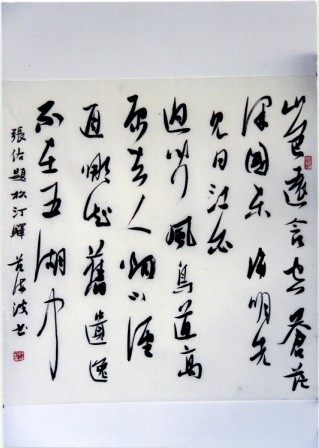 山色遠含空蒼茫
澤國東海明先
見日江白
迥聞風鳥道高
原去人烟小徑
通那知舊遺逸
不在五湖中
張祜題松汀驛